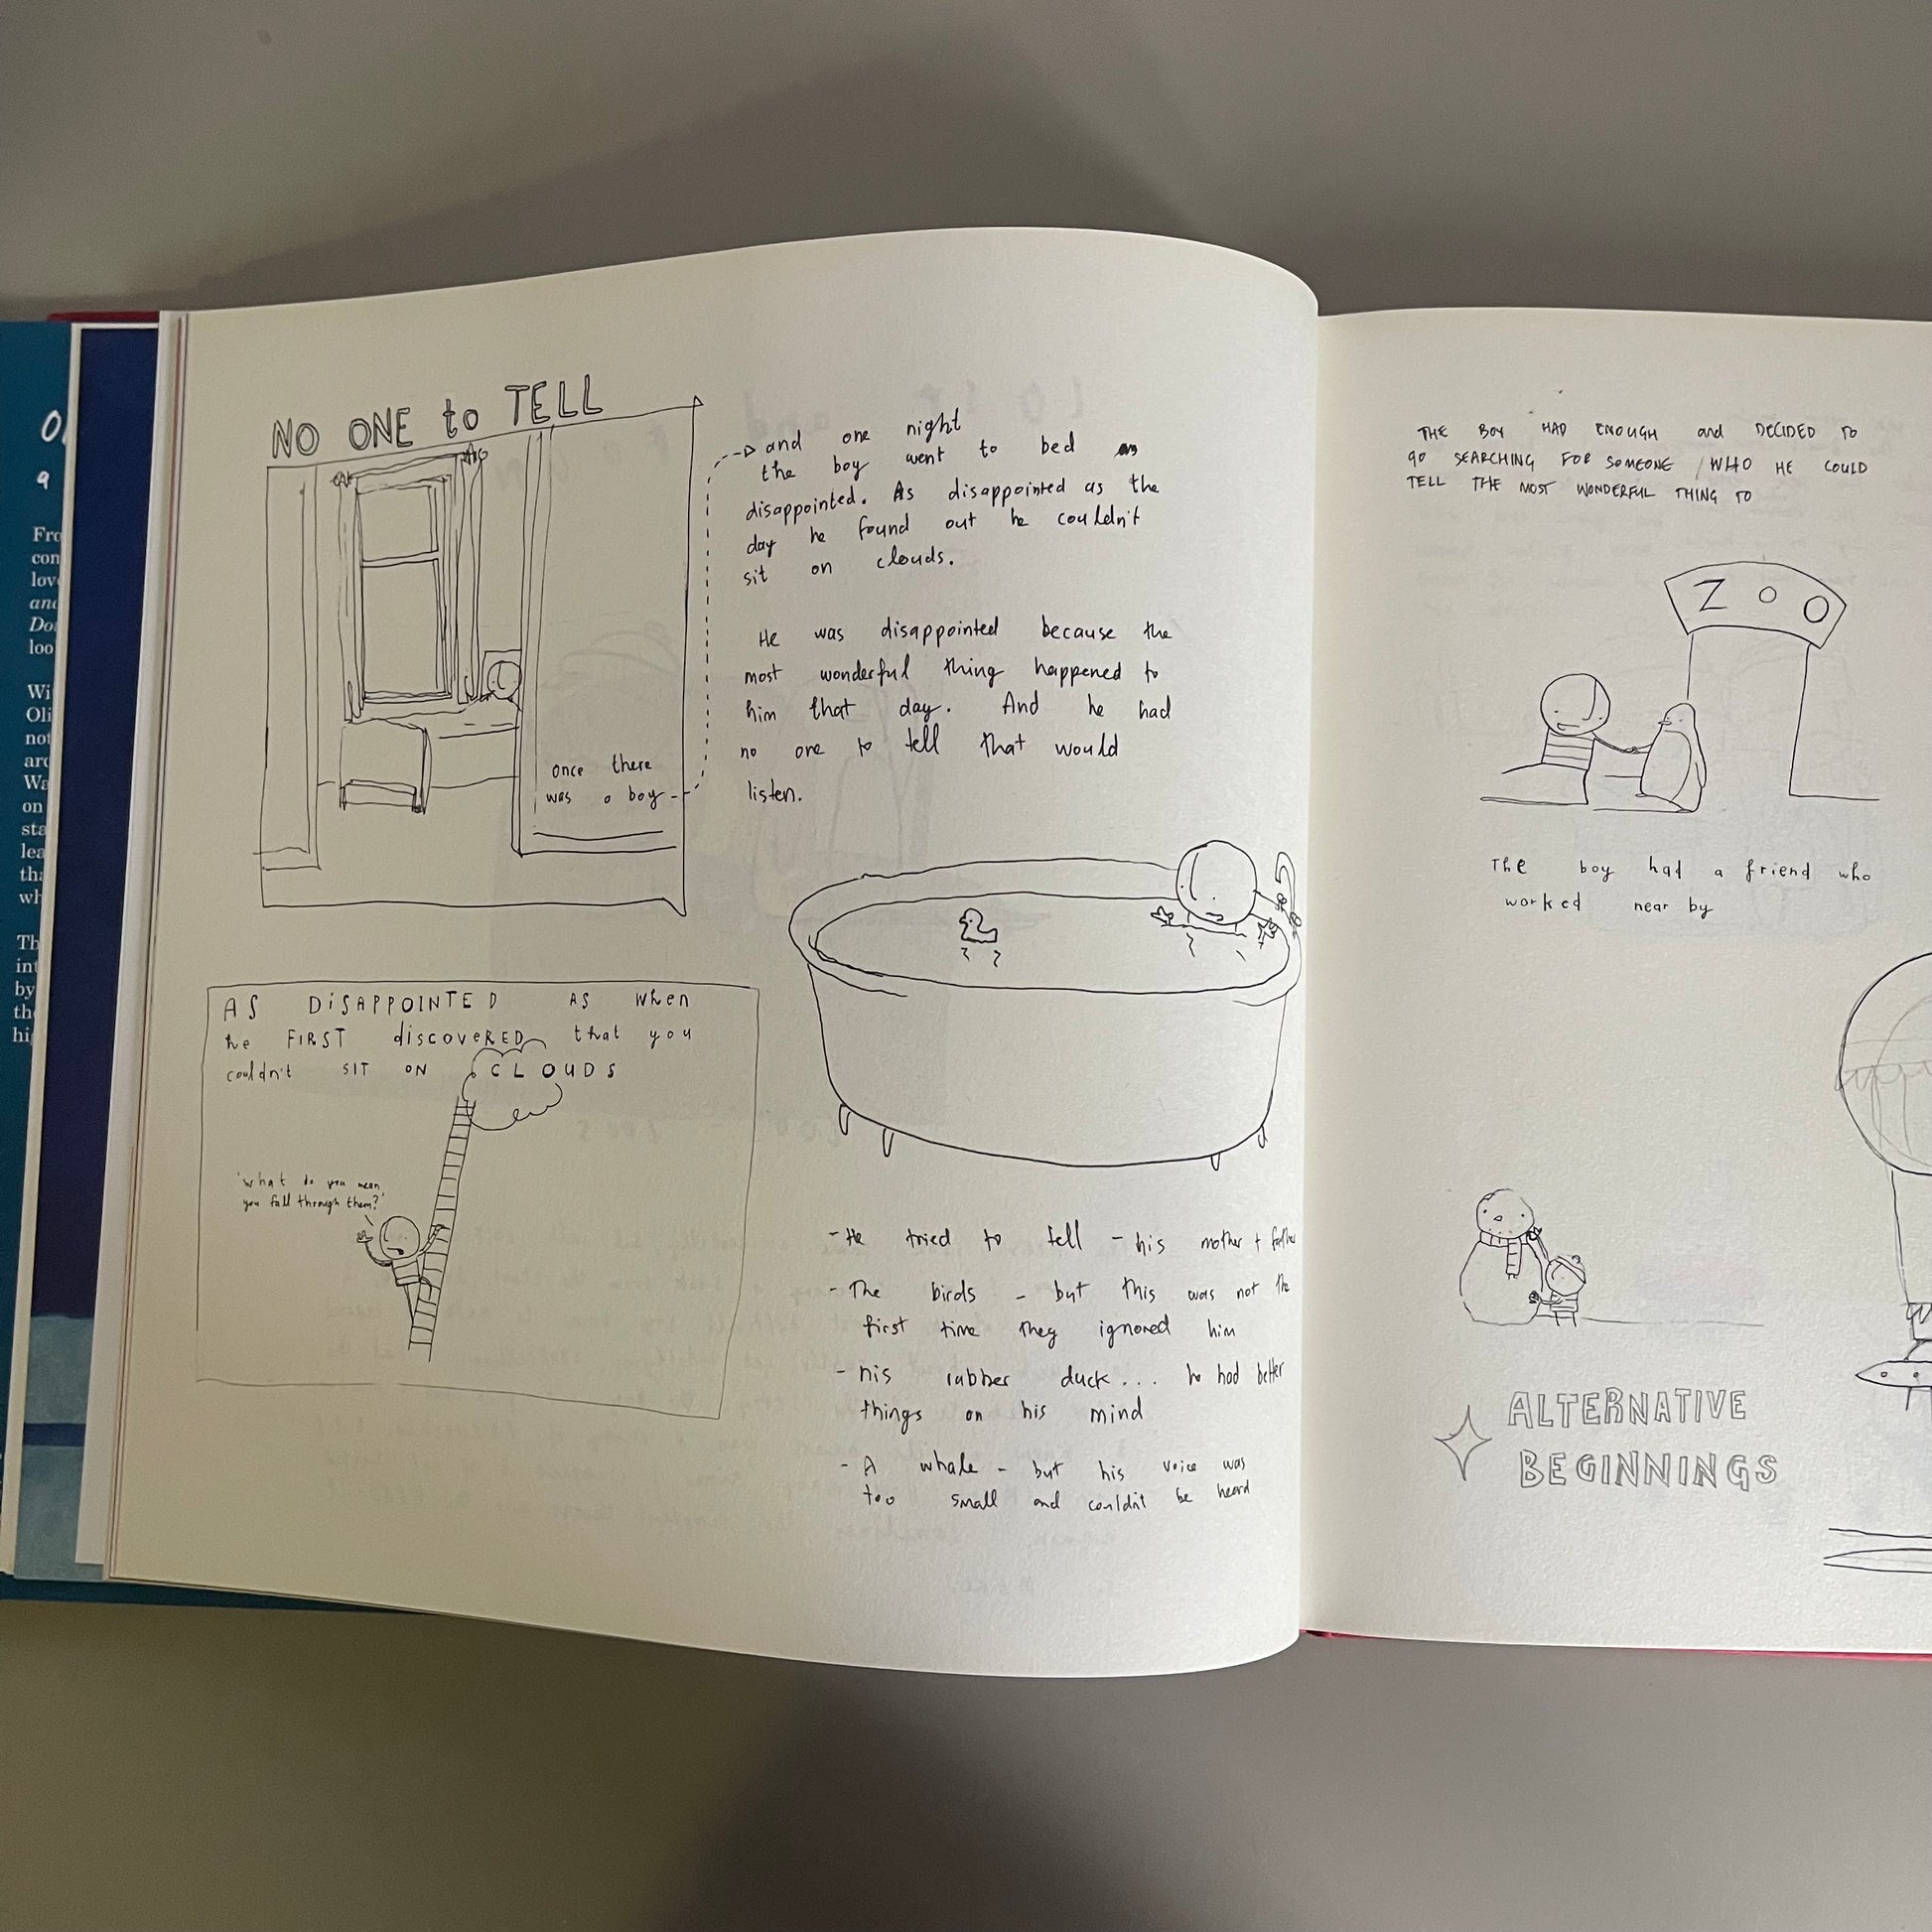 NO ONE to TELL
once there
was a boy
and one night
the boy went to bed
disappointed. As disappointed as the
day he found out he couldn't
sit on clouds.
He was disappointed because the
most wonderful thing happened to
him that day. And he had
no one to tell that would
listen.
AS DISAPPOINTED AS when
he FIRST discoVERED that you
couldn't SIT ON CLOUDS
'what do you mean
you fall through them?'
- He tried to tell - his mother + father
- The birds - but this was not the
first time they ignored him
- his rubber duck... he had better
things on his mind
- A whale - but his voice was
too small and couldn't be heard
THE BOY HAD ENOUGH and DECIDED TO
go SEARCHING FOR SOMEONE WHO HE COULD
TELL THE MOST WONDERFUL THING TO
ZOO
The boy had a friend who
worked near by
ALTERNATIVE
BEGINNINGS